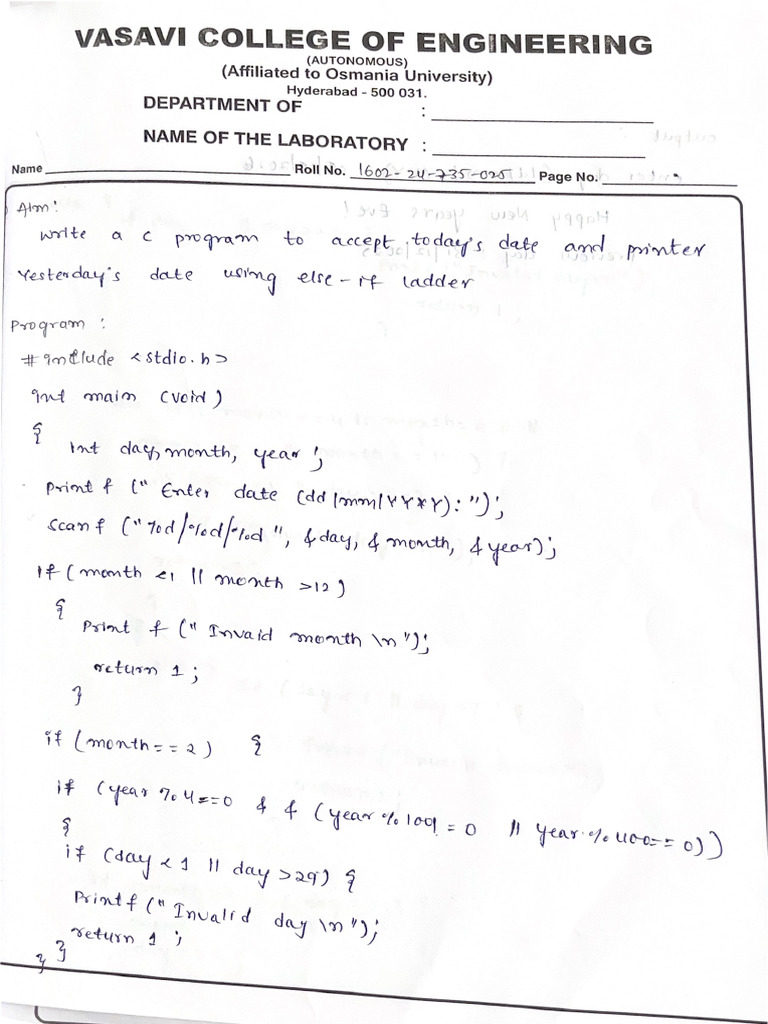 VASAVI COLLEGE OF ENGINEERING
(AUTONOMOUS)
(Affiliated to Osmania University)
Hyderabad - 500 031.
DEPARTMENT OF :
NAME OF THE LABORATORY :
Name Roll No. 1602-24-735-025 Page No.
Aim:
Write a c program to accept today's date and printer
Yesterday's date using else-if ladder
Program:
#include <stdio.h>
int main (void)
{
int day, month, year;
Printf ("Enter date (dd/mm/YY*Y):");
Scanf ("%d/%d/%d", &day, &month, &year);
if (month <1 || month >12)
{
Printf ("Invaid month \n");
return 1;
}
if (month==2) {
if (year %4==0 && (year %100!=0 || year %400==0))
{
if (day <1 || day >29) {
Printf ("Invalid day \n");
return 1;
} }